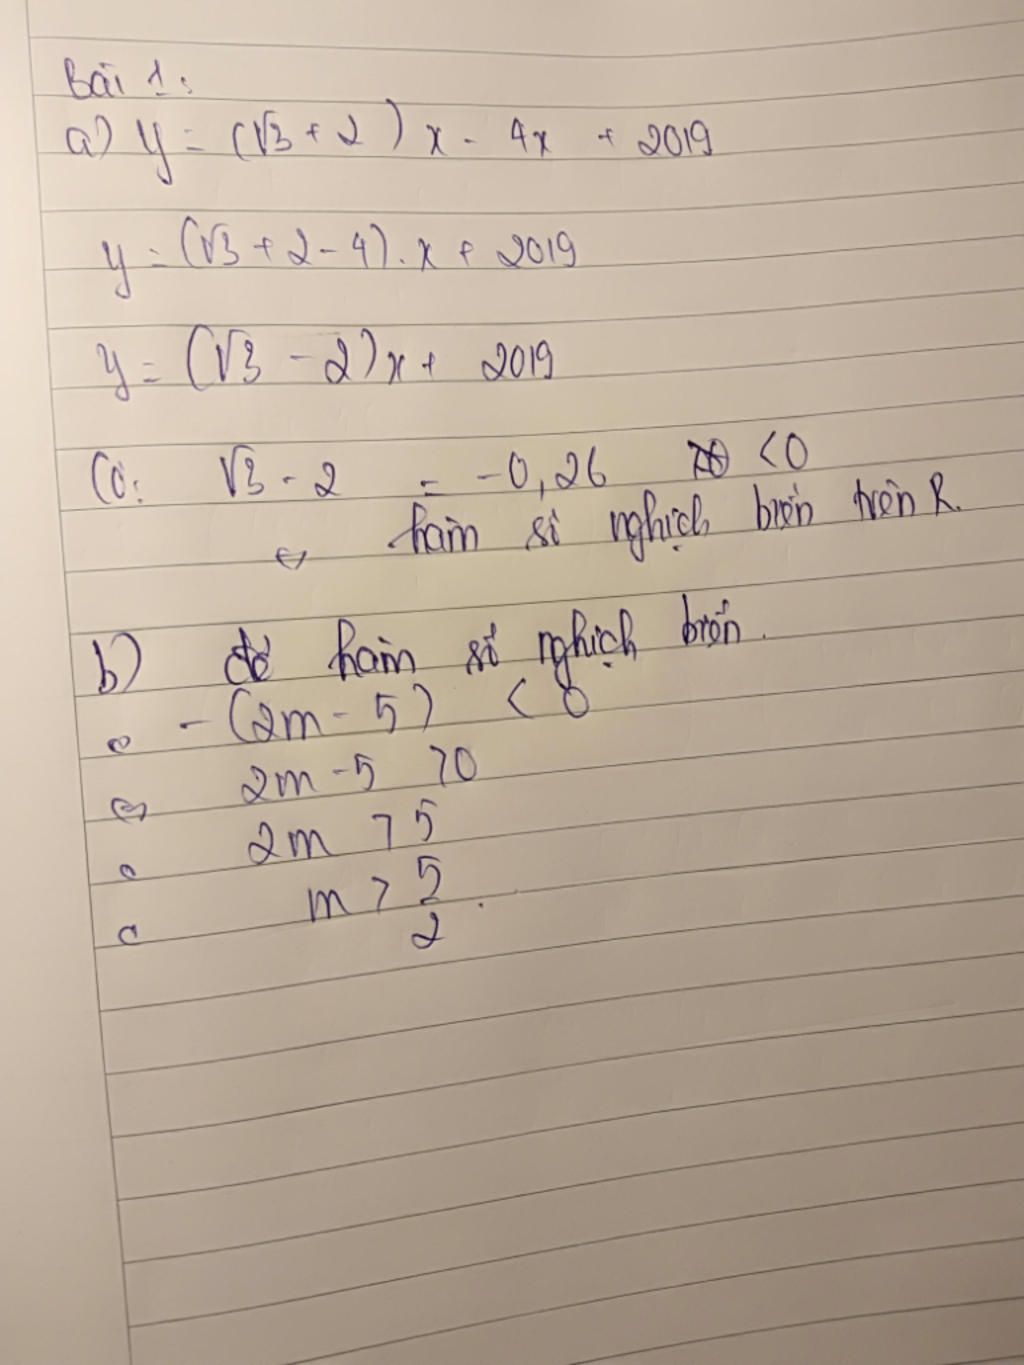 Bài 1:
a) y = (√3 + 2) x - 4x + 2019
y = (√3 + 2 - 4). x + 2019
y = (√3 - 2) x + 2019
Có: √3 - 2 = -0,26 <0
⇔ hàm số nghịch biến trên R.
b) để hàm số nghịch biến.
- (2m - 5) < 0
⇔ 2m - 5 > 0
2m > 5
m > 5/2.